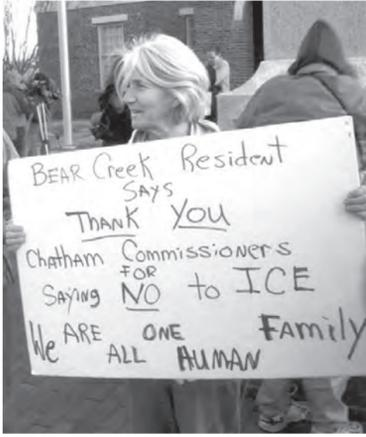 BEAR Creek Resident
SAYS
THANK YOU
Chatham Commissioners
FOR
SAYING NO to ICE
We ARE ONE Family
ALL HUMAN